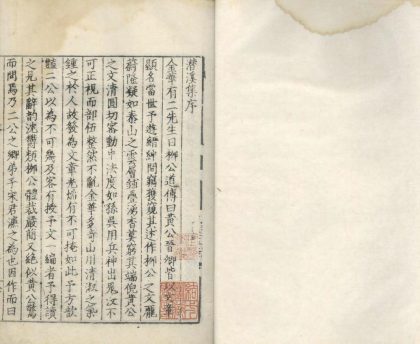 潛溪集序
金華有二先生曰柳公道傳曰黃公晉卿皆以文章
顯名當世予遊縉紳間竊獲窺其述作柳公之文龐
蔚隆凝如泰山之雲層鋪疊湧杳莫窮其端倪黃公
之文清圓切密動中法度如孫吳用兵神出鬼沒不
可正視而部伍整然不亂金華多奇山川清淑之氣
鍾之於人故發為文章光燄有不可掩如此予方歆
豔二公以為不可幾及客有授予文一編者予得讀
之見其辭韻沈鬱類柳公體裁嚴簡又絕似黃公驚
而問焉乃二公之鄉弟子宋君濂之為也因作而曰